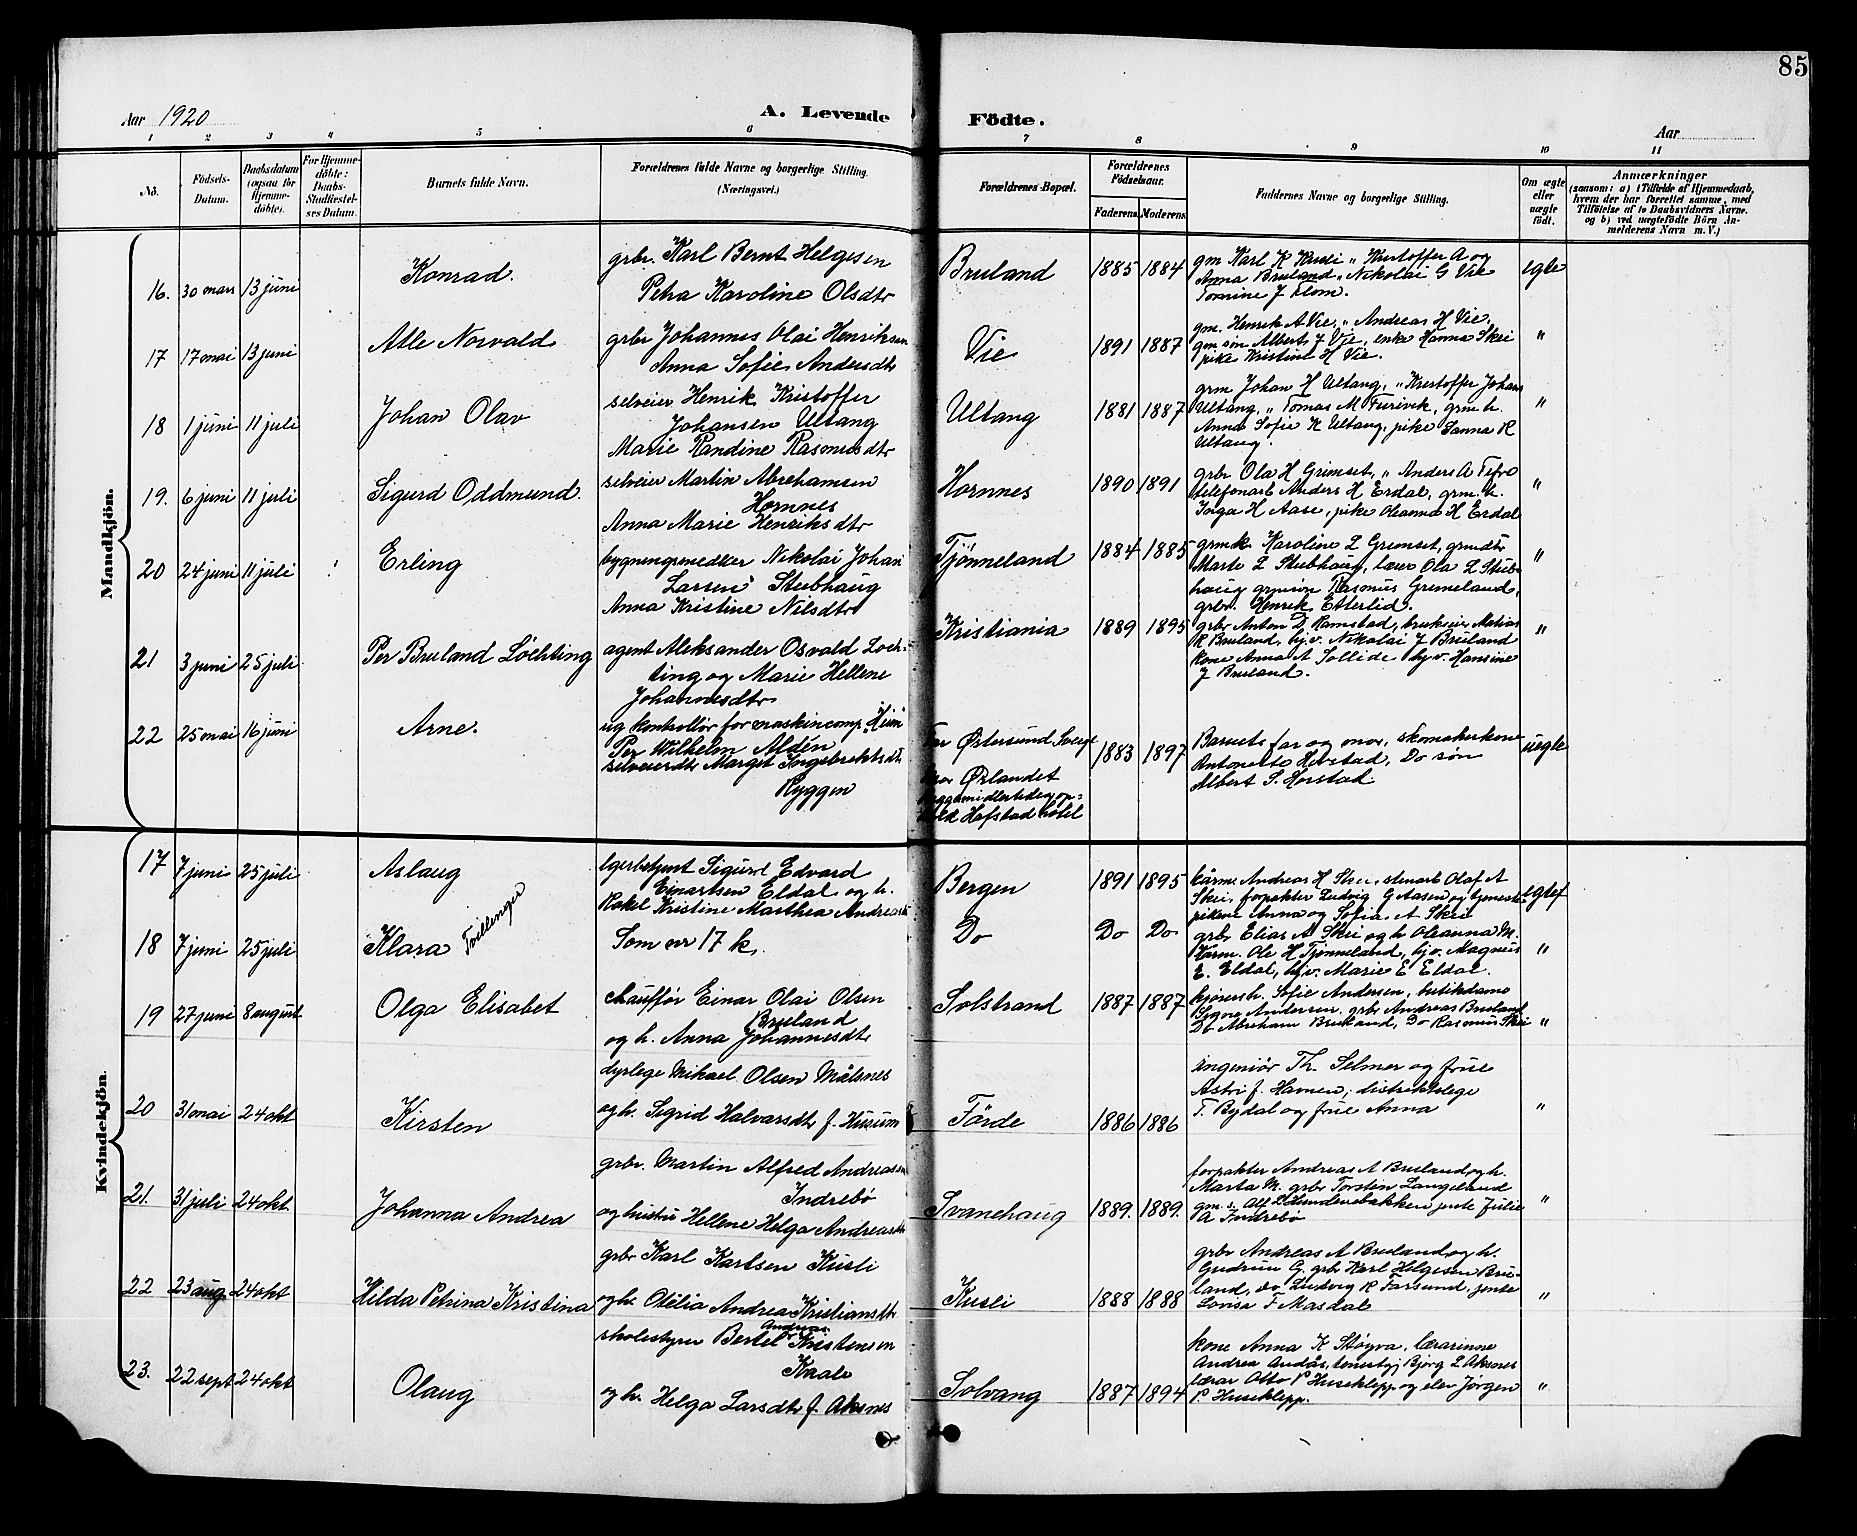 85
Aar 1920
A. Levende Födte.
Aar
1 2 3 4 5 6 7 8 9 10 11
No.
Födsels-Datum.
Daabsdatum (ogsaa for Hjemme-döbte).
For Hjemme-döbte: Daabs-Stadfæstel-ses Datum.
Barnets fulde Navn.
Forældrenes fulde Navne og borgerlige Stilling. (Næringsvei.)
Forældrenes Bopæl.
Forældrenes Födselsaar.
Faderens Moderens
Faddernes Navne og borgerlige Stilling.
Om ægte eller uægte födt.
Anmærkninger
(saasom: a) i Tilfælde af Hjemmedaab, hvem der har forrettet samme, med Tilföielse af to Daabsvidners Navne. og b) ved uægtefödte Börn Anmelderens Navn m. V.)
Mandkjön.
16. 30 mars 13 juni Konrad.
grbr. Karl Bernt Helgesen
Petra Karoline Olsdtr
Bruland 1885 1884
gm Karl K Kusli " Kristoffer A og
Anna Bruland " Nikolai G Vie
Tomine J Flom.
egte
17 17 mai 13 juni Atle Norvald
grbr Johannes Olai Henriksen
Anna Sofie Andersdtr
Vie 1891 1887
gm. Henrik A Vie, " Andreas H Vie,
gm søn Albert J Vie, enke Hanna Skei
pike Kristine H Vie.
"
18 1 juni 11 juli Johan Olav
selveier Henrik Kristoffer
Johansen Ultang
Marie Randine Rasmusdtr
Ultang 1881 1887
grm Johan H Ultang, " Kristoffer Johans
Ultang, " Tomas M Furevik, grm. h.
Anna Sofie K Ultang, pike Sanna R
Ultang.
"
19. 6 juni 11 juli Sigurd Oddmund.
selveier Martin Abrahamsen
Hornnes
Anna Marie Henriksdtr
Hornnes 1890 1891
grbr Ola H Grimset, " Anders A Tefre
telefonarb Anders H Erdal, grm. h.
Inga H Aase, pike Oleanna H Erdal
"
20 24 juni 11 juli Erling
bygningsnedker Nikolai Johan
Larsen Stubhaug
Anna Kristine Nilsdtr
Tjønneland 1884 1885
grmk. Karoline L Grimset, grmdtr
Marte L Stubhaug, lærer Ola L Stub-
haug grmsøn Rasmus Grimeland,
grbr. Henrik Etterlid.
"
21 3 juni 25 juli Per Bruland Löchting
agent Aleksander Osvald Loch-
ting og Marie Hellene
Johannesdtr
Kristiania 1889 1895
grbr Anton D Ramstad, brukseier Matias
R Bruland, hj.v. Nikolai J Bruland
kone Anna A Sollide hj v. Hansine
J Bruland.
"
22 25 mai 16 juni Arne.
ug kontrollör for maskincomp. "Heim"
Per Wilhelm Aldén
selveierdtr Marget Ingebrektsdtr
Ryggen
Far Østersund Sverige
Mor Ørlandet
Ryggen midlertidig op-
hold Hafstad hotel
1883 1897
Barnets far og mor, skomakerkone
Antonette Horstad, Do søn
Albert S. Horstad
uegte
Kvindekjön.
17 7 juni 25 juli Aslaug
lgerbetjent Sigurd Edvard
Einartsen Eldal og h.
Rakel Kristine Marthea Andreasdtr
Bergen 1891 1895
kårm. Andreas H Skei, stenarb Olaf A
Skei, forpakter Ludvig G Aasen og tjeneste-
pikene Anna og Sofia A Skei
egtef
18 7 juni 25 juli Klara Tvillinger
Som nr 17 k.
Do Do Do
grbr Elias A Skei og h Oleanna M.
Kårm. Ole H Tjønneland, hj.v. Magnus
E. Eldal, hj.v. Marie E Eldal.
"
19 27 juni 8 august Olga Elisabet
chauffør Einar Olai Olsen
Bruland
og h. Anna Johannesdtr
Solstrand 1887 1887
kjørersh. Sofie Andersen, butikdame
Signe Andersen. grbr Andreas Bruland
Do Abraham Bruland, Do Rasmus Skei
"
20 31 mai 24 okt Kirsten
dyrlege Mikael Olsen Målsnes
og h. Sigrid Halvarsdtr f. Husum
Förde 1886 1886
ingeniör Th. Selmer og frue
Astri f. Havnen, distriktslege
T. Bydal og frue Anna
"
21. 31 juli 24 okt Johanna Andrea
grbr. Martin Alfred Andreassen
Indrebö
og hustru Hellene Helga Andreasdtr
Svanehaug 1889. 1889.
forpakter Andreas A Bruland og h.
Marta M. grbr Torstin Langeland
gm. s. Alf L Sundenebakken jente Julie
A Indrebö
"
22 23 aug 24 okt Hilda Petrina Kristina
grbr Karl Karlsen Kusli
og h. Otelia Andrea Kristiansdtr
Kusli 1888 1888
grbr Andreas A Bruland og h.
Gudrun G. grbr Karl Helgesen Bru-
land, do Ludvig R Farsund, jente
Lovise F Masdal
"
23. 22 sept 24 okt Olaug
skolestyrer Bertel Andreas Kristensen
Kaale
og h. Helga Larsdtr f. Aksnes
Solvang 1887 1894
kone Anna K Støyva, lærarinne
Andrea Andås, tenestgj Bjørg L Aksnes
lærar Otto P Huseklepp og elev Jørgen
P. Huseklepp.
"